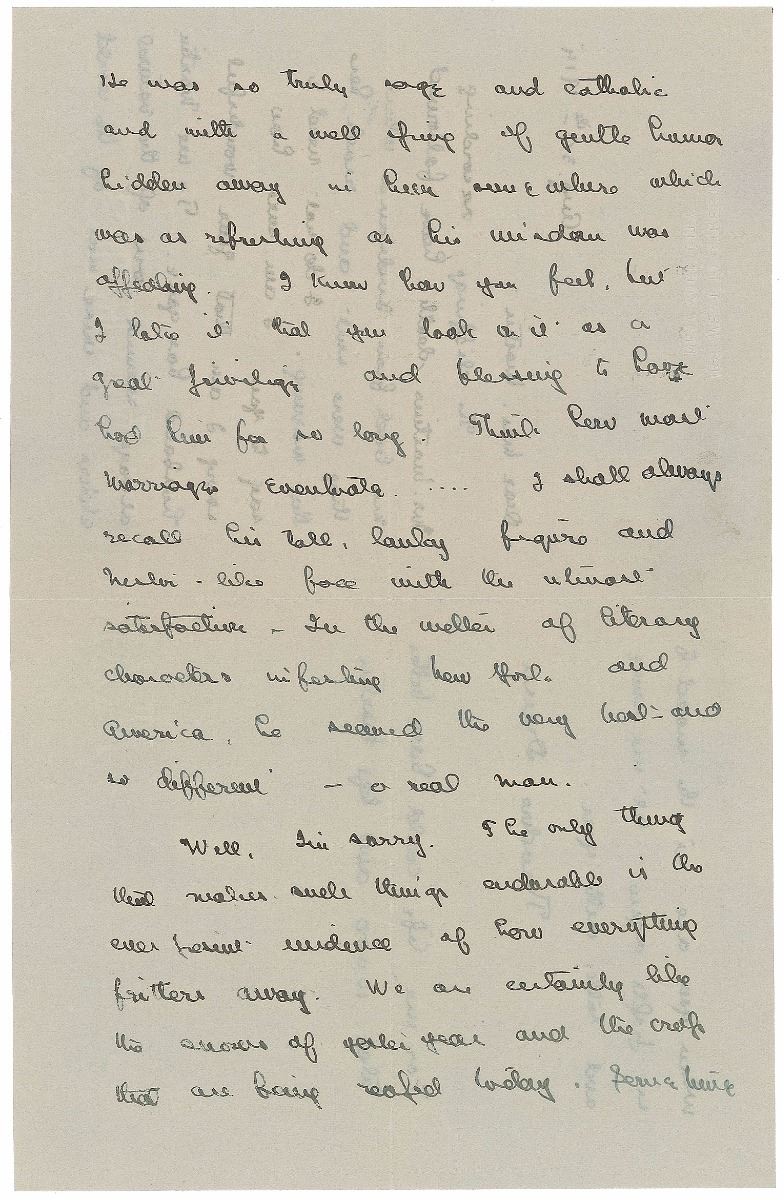 He was so truly sage and catholic
and with a well spring of gentle humor
hidden away in him somewhere which
was as refreshing as his wisdom was
affecting. I know how you feel, but
I take it that you look on it as a
great privilege and blessing to have
had him for so long. Think how most
marriages eventuate ..... I shall always
recall his tall, lanky figure and
Nestor-like face with the utmost
satisfaction - In the matter of literary
characters infesting New York and
America, he seemed the very best - and
so different - a real man.
Well, I'm sorry. The only thing
that makes such things endurable is the
ever evidence of how everything
fritters away. We are certainly like
the snows of yester year and the crops
that are being reaped today.